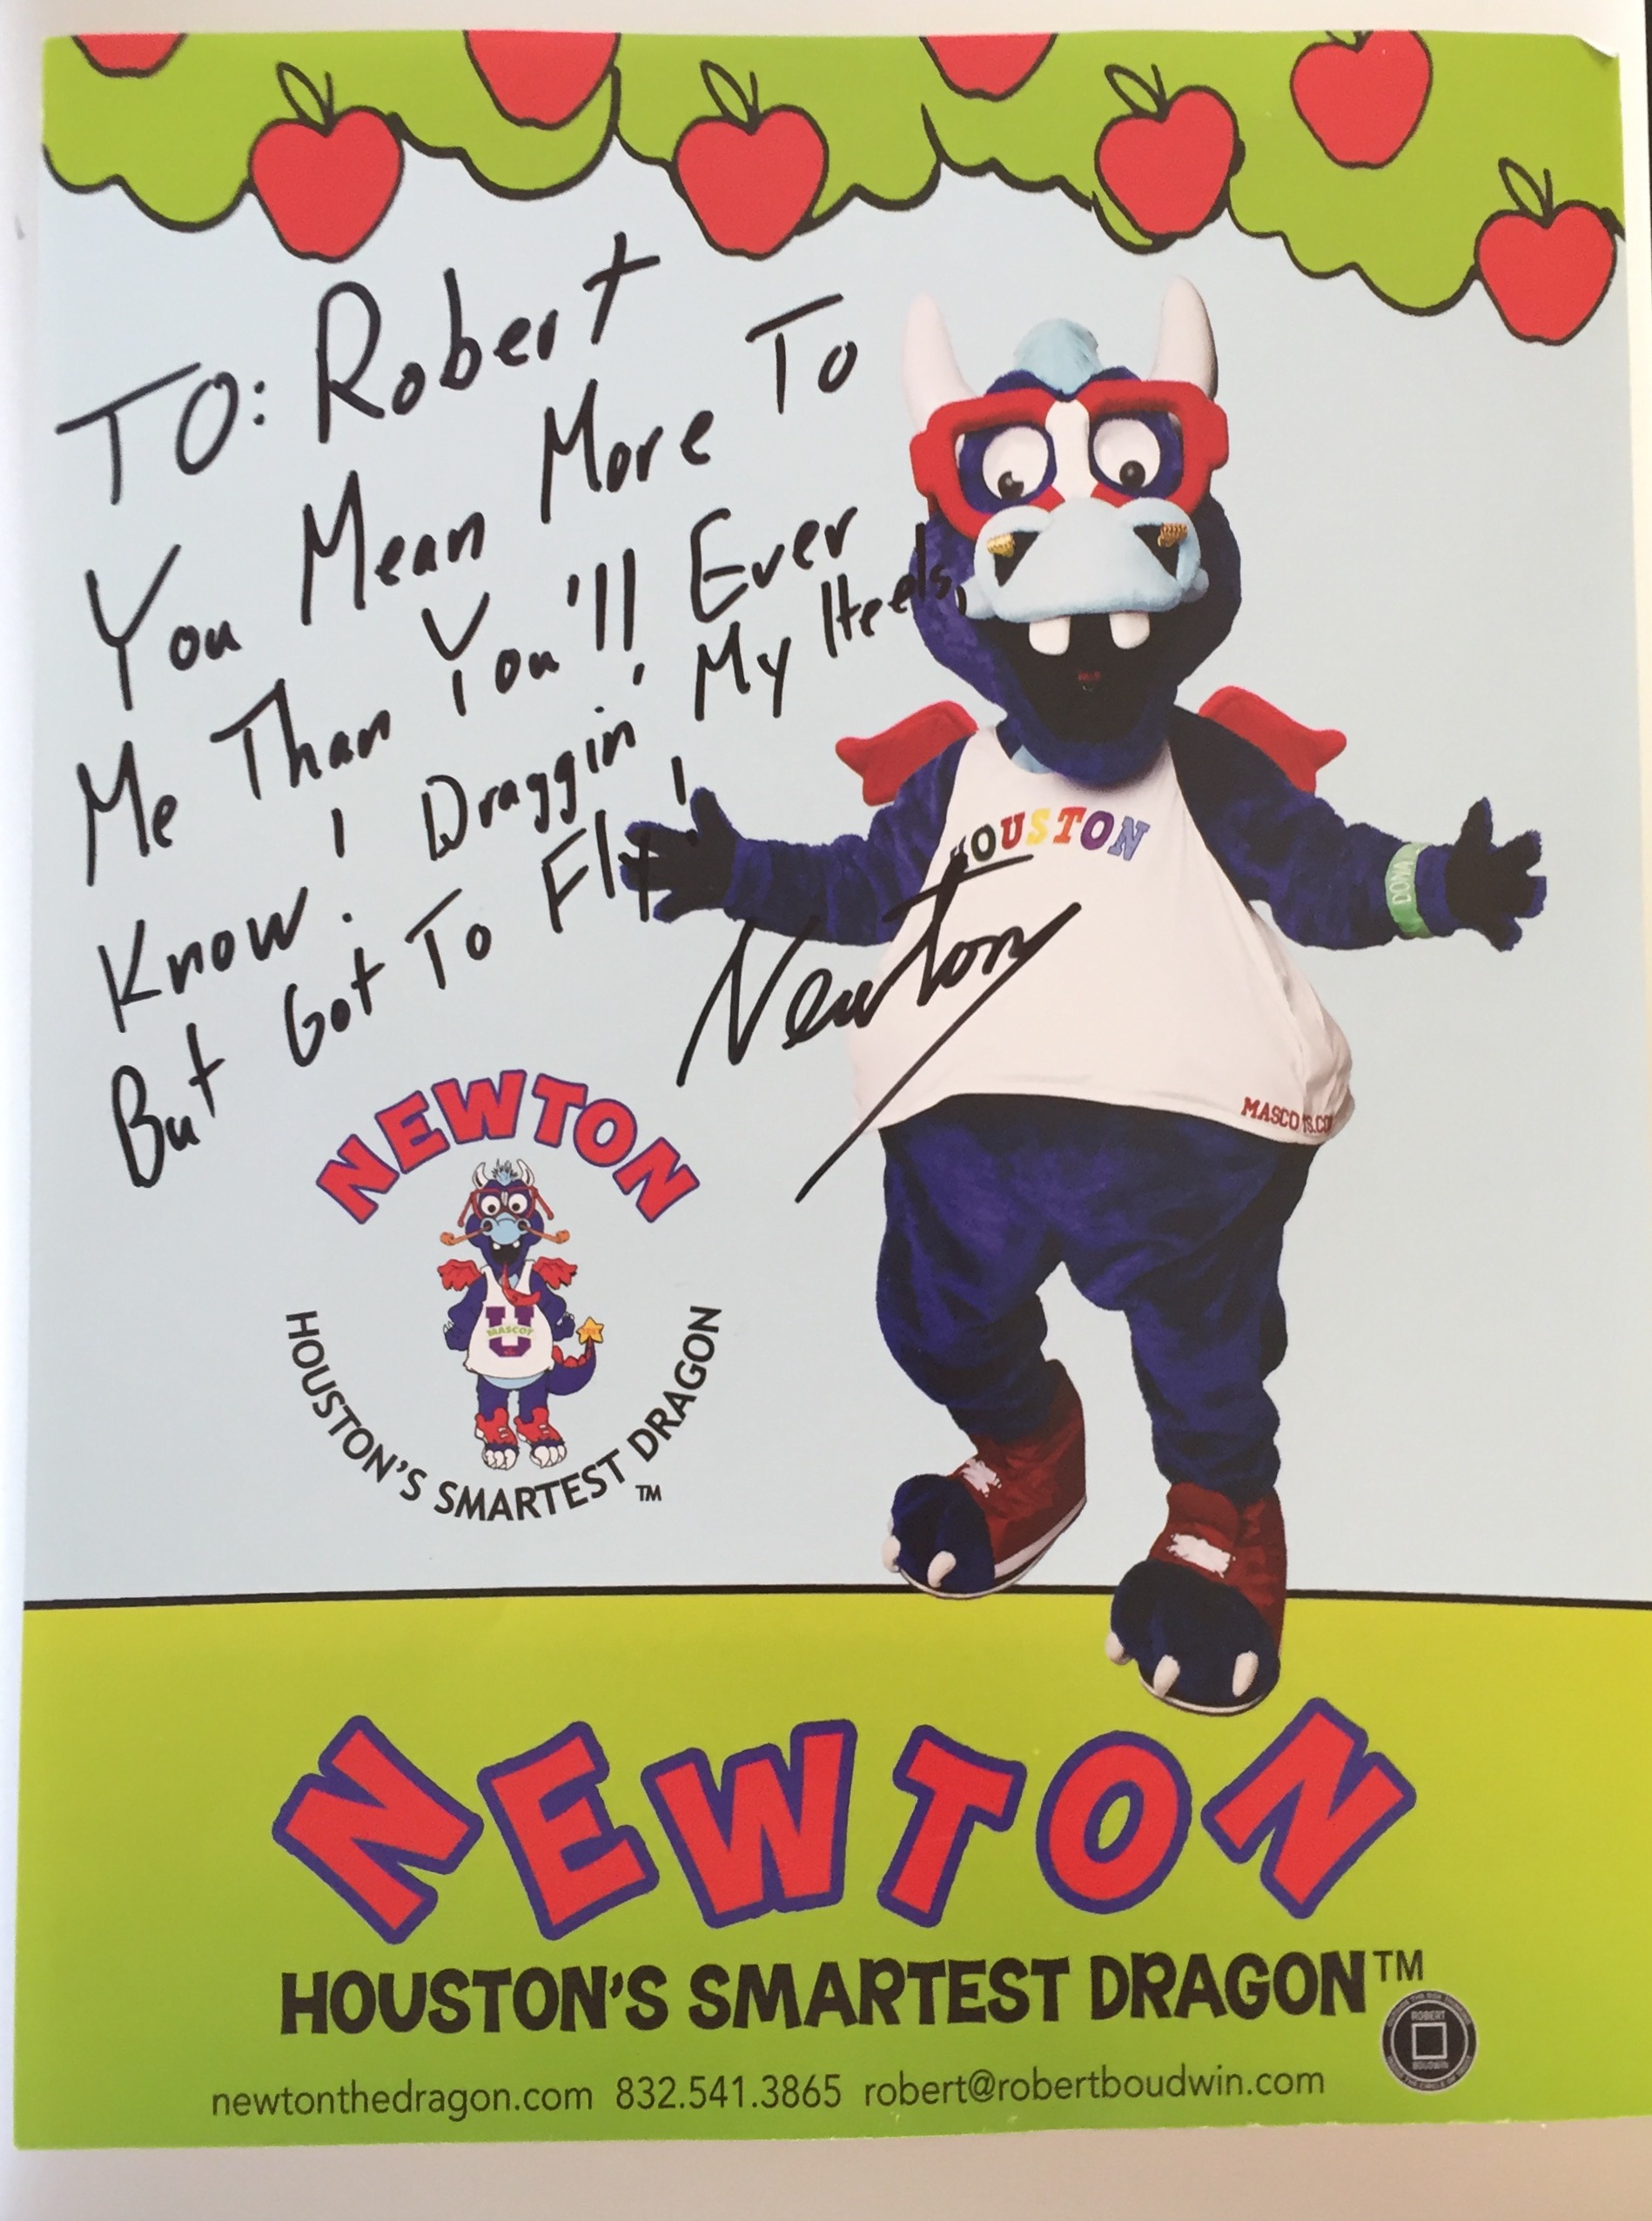 TO: Robert
You Mean More To
Me Than You'll Ever
Know! Draggin' My Heels,
But Got To Fly!
Newton
HOUSTON
NEWTON
U
MASCOT
HOUSTON'S SMARTEST DRAGON
TM
NEWTON
HOUSTON'S SMARTEST DRAGON™
ROBERT
BOUDWIN
newtonthedragon.com 832.541.3865 robert@robertboudwin.com